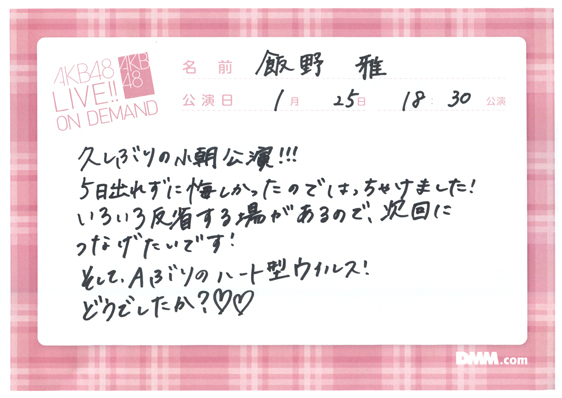 AKB48
LIVE!!
ON DEMAND
AKB
48
名前 飯野 雅
公演日 1月 25日 18:30 公演
久しぶりの小朝公演!!!
5日出れずに悔しかったのではっちゃけました!
いろいろ反省する場があるので、次回に
つなげたいです!
そして、Aぶりのハート型ウイルス!
どうでしたか?♡♡
DMM.com